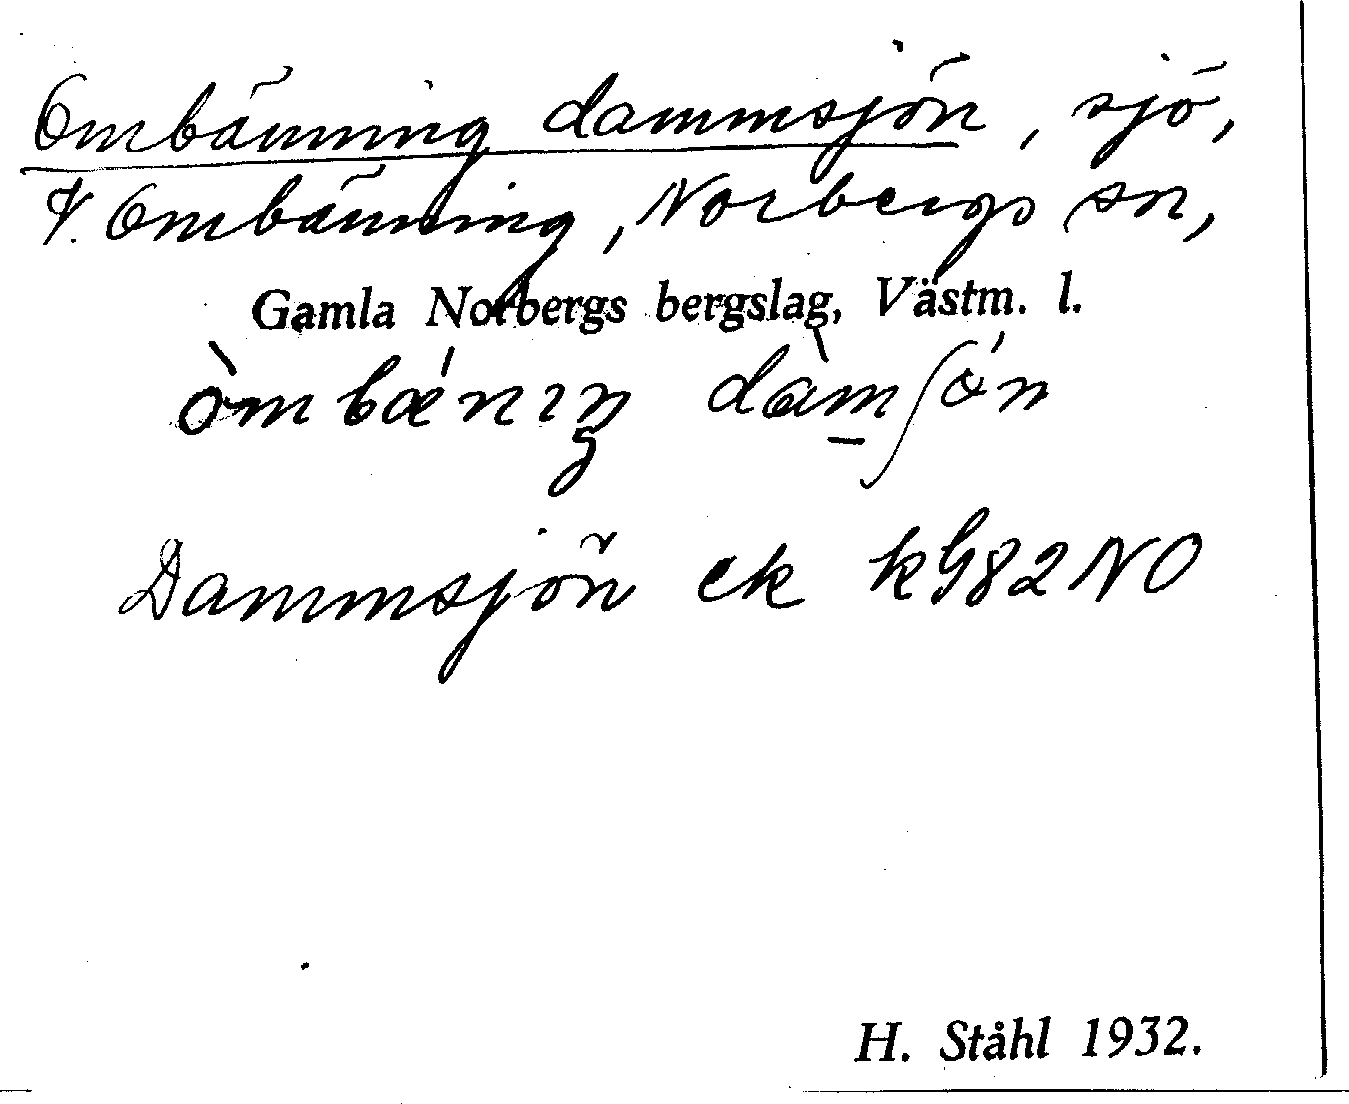 Ombänning dammsjön, sjö,
V. Ombänning, Norbergs sn,
Gamla Norbergs bergslag, Västm. l.
òmbǽnıŋ dàm̱ʃǿn
Dammsjön ek kG82NO
H. Ståhl 1932.